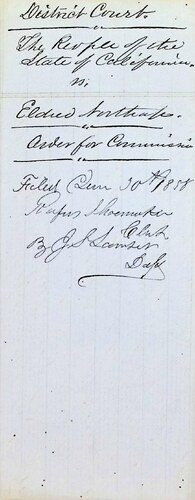 District Court.
The People of the
State of California
vs,
Eldred Northup.
Order for Commission
Filed 30th 1858
Rufus Shoemaker
Clerk
By J. S.
Dept